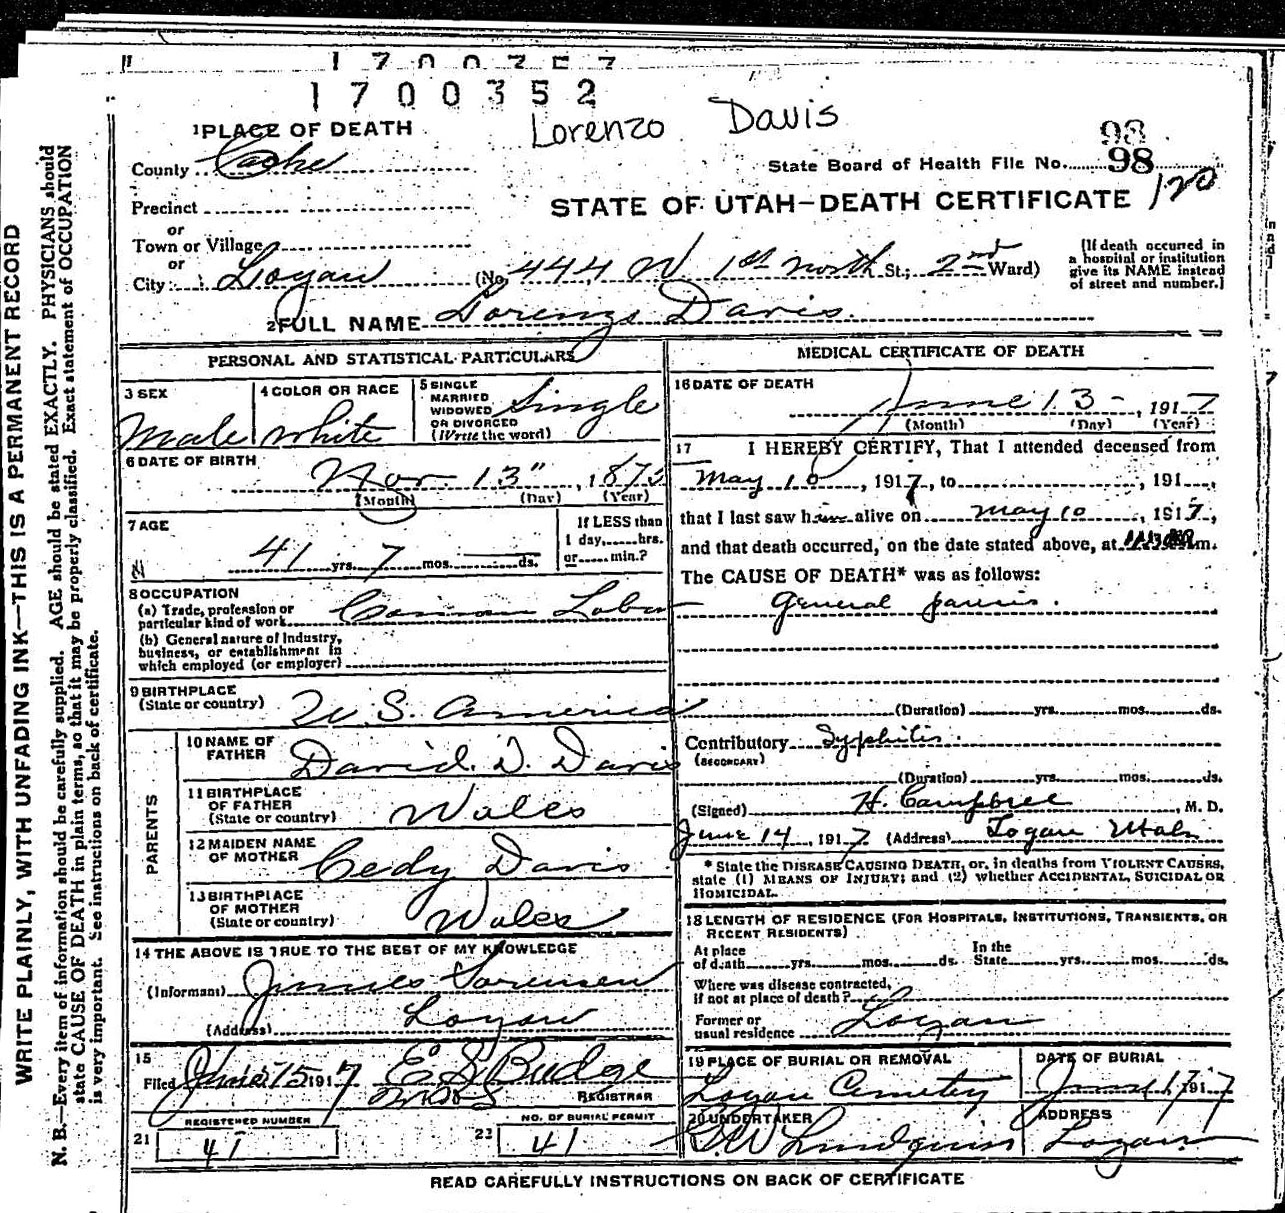 1700352
Lorenzo Davis
98
1 PLACE OF DEATH
County Cache
State Board of Health File No. 98
120
Precinct
STATE OF UTAH—DEATH CERTIFICATE
or
Town or Village
or
City Logan (No. 444 W 1st North St.; 2nd Ward)
(If death occurred in a hospital or institution give its NAME instead of street and number.)
2 FULL NAME Lorenzo Davis.
PERSONAL AND STATISTICAL PARTICULARS
3 SEX Male
4 COLOR OR RACE White
5 SINGLE MARRIED WIDOWED OR DIVORCED (Write the word) Single
6 DATE OF BIRTH
Nov. 13", 187
(Month) (Day) (Year)
7 AGE
41 yrs. 7 mos. ds.
If LESS than 1 day, hrs. or min.?
8 OCCUPATION
(a) Trade, profession or particular kind of work Labor
(b) General nature of Industry, business, or establishment in which employed (or employer)
9 BIRTHPLACE
(State or country) U.S. America
PARENTS
10 NAME OF FATHER David D. Davis
11 BIRTHPLACE OF FATHER (State or country) Wales
12 MAIDEN NAME OF MOTHER Cedy Davis
13 BIRTHPLACE OF MOTHER (State or country) Wales
14 THE ABOVE IS TRUE TO THE BEST OF MY KNOWLEDGE
(Informant) James Sorensen
(Address) Logan
15
Filed June 15 1917 E S Budge
REGISTRAR
21 REGISTERED NUMBER 41
22 NO. OF BURIAL PERMIT 41
MEDICAL CERTIFICATE OF DEATH
16 DATE OF DEATH
June 13-, 1917
(Month) (Day) (Year)
17 I HEREBY CERTIFY, That I attended deceased from
May 10, 1917, to , 191 ,
that I last saw him alive on May 10, 1917,
and that death occurred, on the date stated above, at m.
The CAUSE OF DEATH* was as follows:
General paresis.
(Duration) yrs. mos. ds.
Contributory Syphilis.
(SECONDARY)
(Duration) yrs. mos. ds.
(Signed) H. Campbell, M. D.
June 14, 1917 (Address) Logan Utah
* State the DISEASE CAUSING DEATH, or, in deaths from VIOLENT CAUSES,
state (1) MEANS OF INJURY; and (2) whether ACCIDENTAL, SUICIDAL OR
HOMICIDAL.
18 LENGTH OF RESIDENCE (FOR HOSPITALS, INSTITUTIONS, TRANSIENTS, OR
RECENT RESIDENTS)
At place of death yrs. mos. ds. In the State yrs. mos. ds.
Where was disease contracted,
if not at place of death?
Former or
usual residence Logan
19 PLACE OF BURIAL OR REMOVAL Logan Cemetery
DATE OF BURIAL June 17 1917
20 UNDERTAKER Lundquist
ADDRESS Logan
READ CAREFULLY INSTRUCTIONS ON BACK OF CERTIFICATE
WRITE PLAINLY, WITH UNFADING INK—THIS IS A PERMANENT RECORD
N. B.—Every item of information should be carefully supplied. AGE should be stated EXACTLY. PHYSICIANS should
state CAUSE OF DEATH in plain terms, so that it may be properly classified. Exact statement of OCCUPATION
is very important. See instructions on back of certificate.